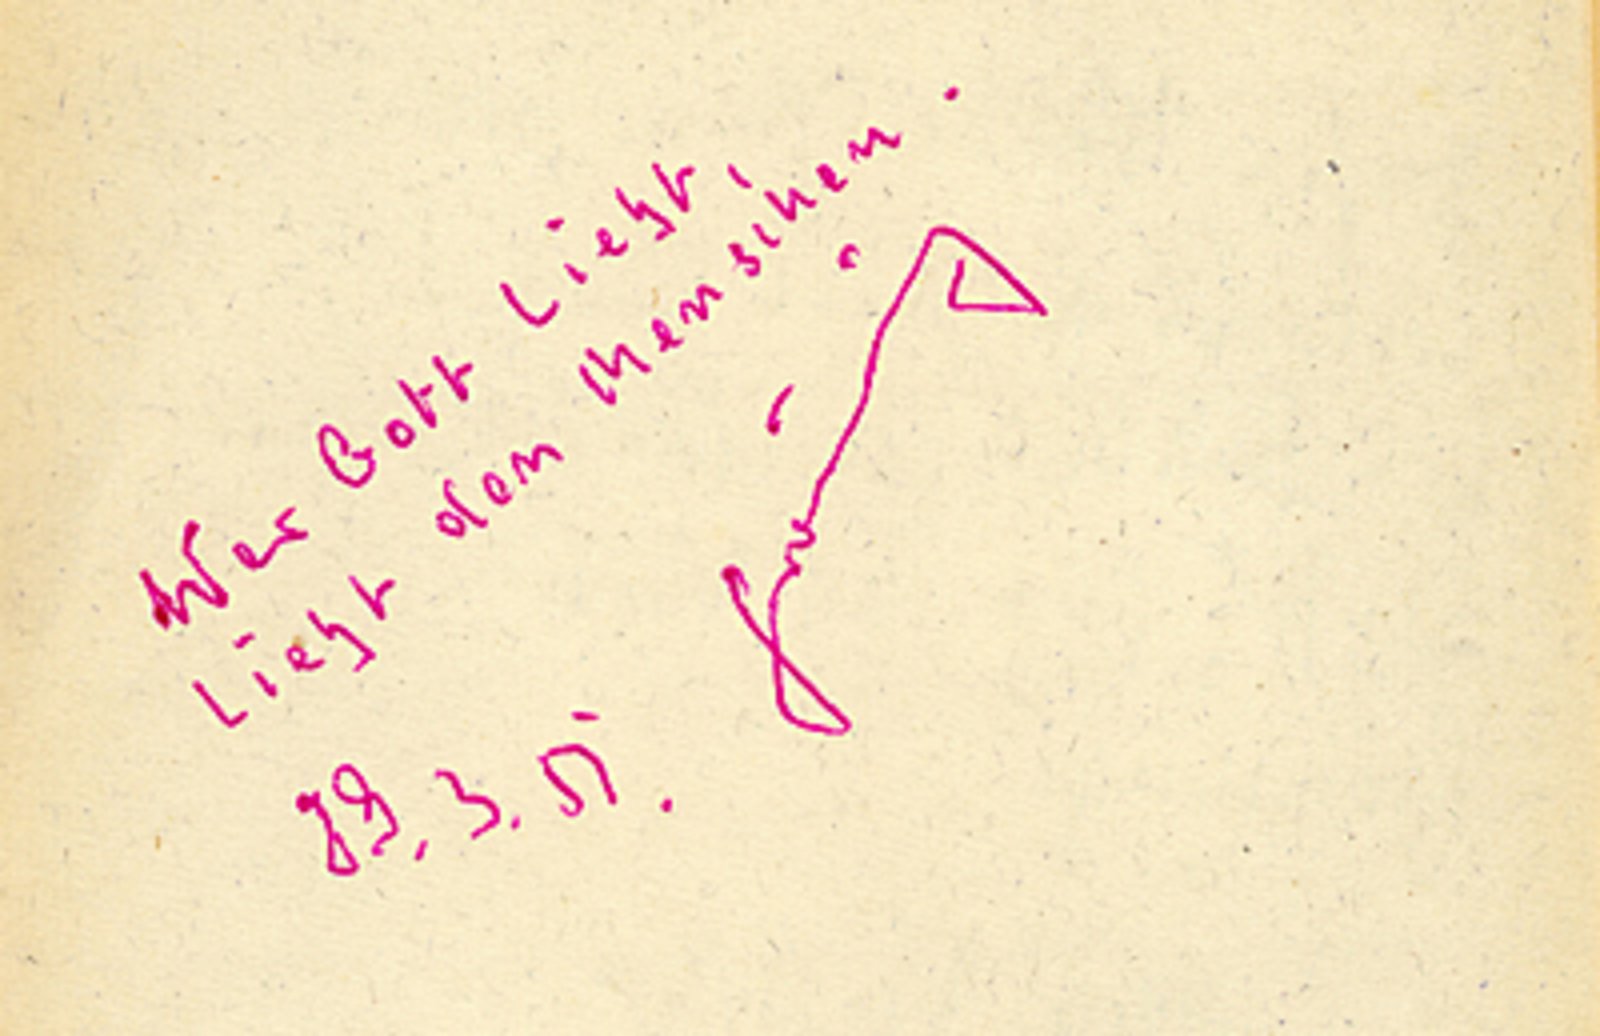 Wer Gott Liebt,
Liebt den Menschen.